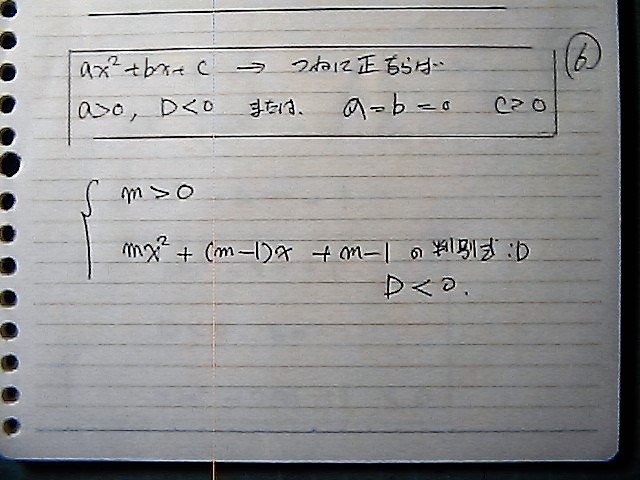 ax²+bx+c → つねに正ならば
a>0, D<0 または、 a=b=0 c>0
⑥
m>0
mx²+(m-1)x+m-1 の判別式:D
D<0.